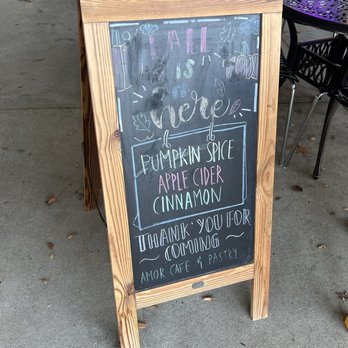 FALL
is
here
PUMPKIN SPICE
APPLE CIDER
CINNAMON
THANK YOU FOR
~ COMING ~
AMOR CAFE & PASTRY